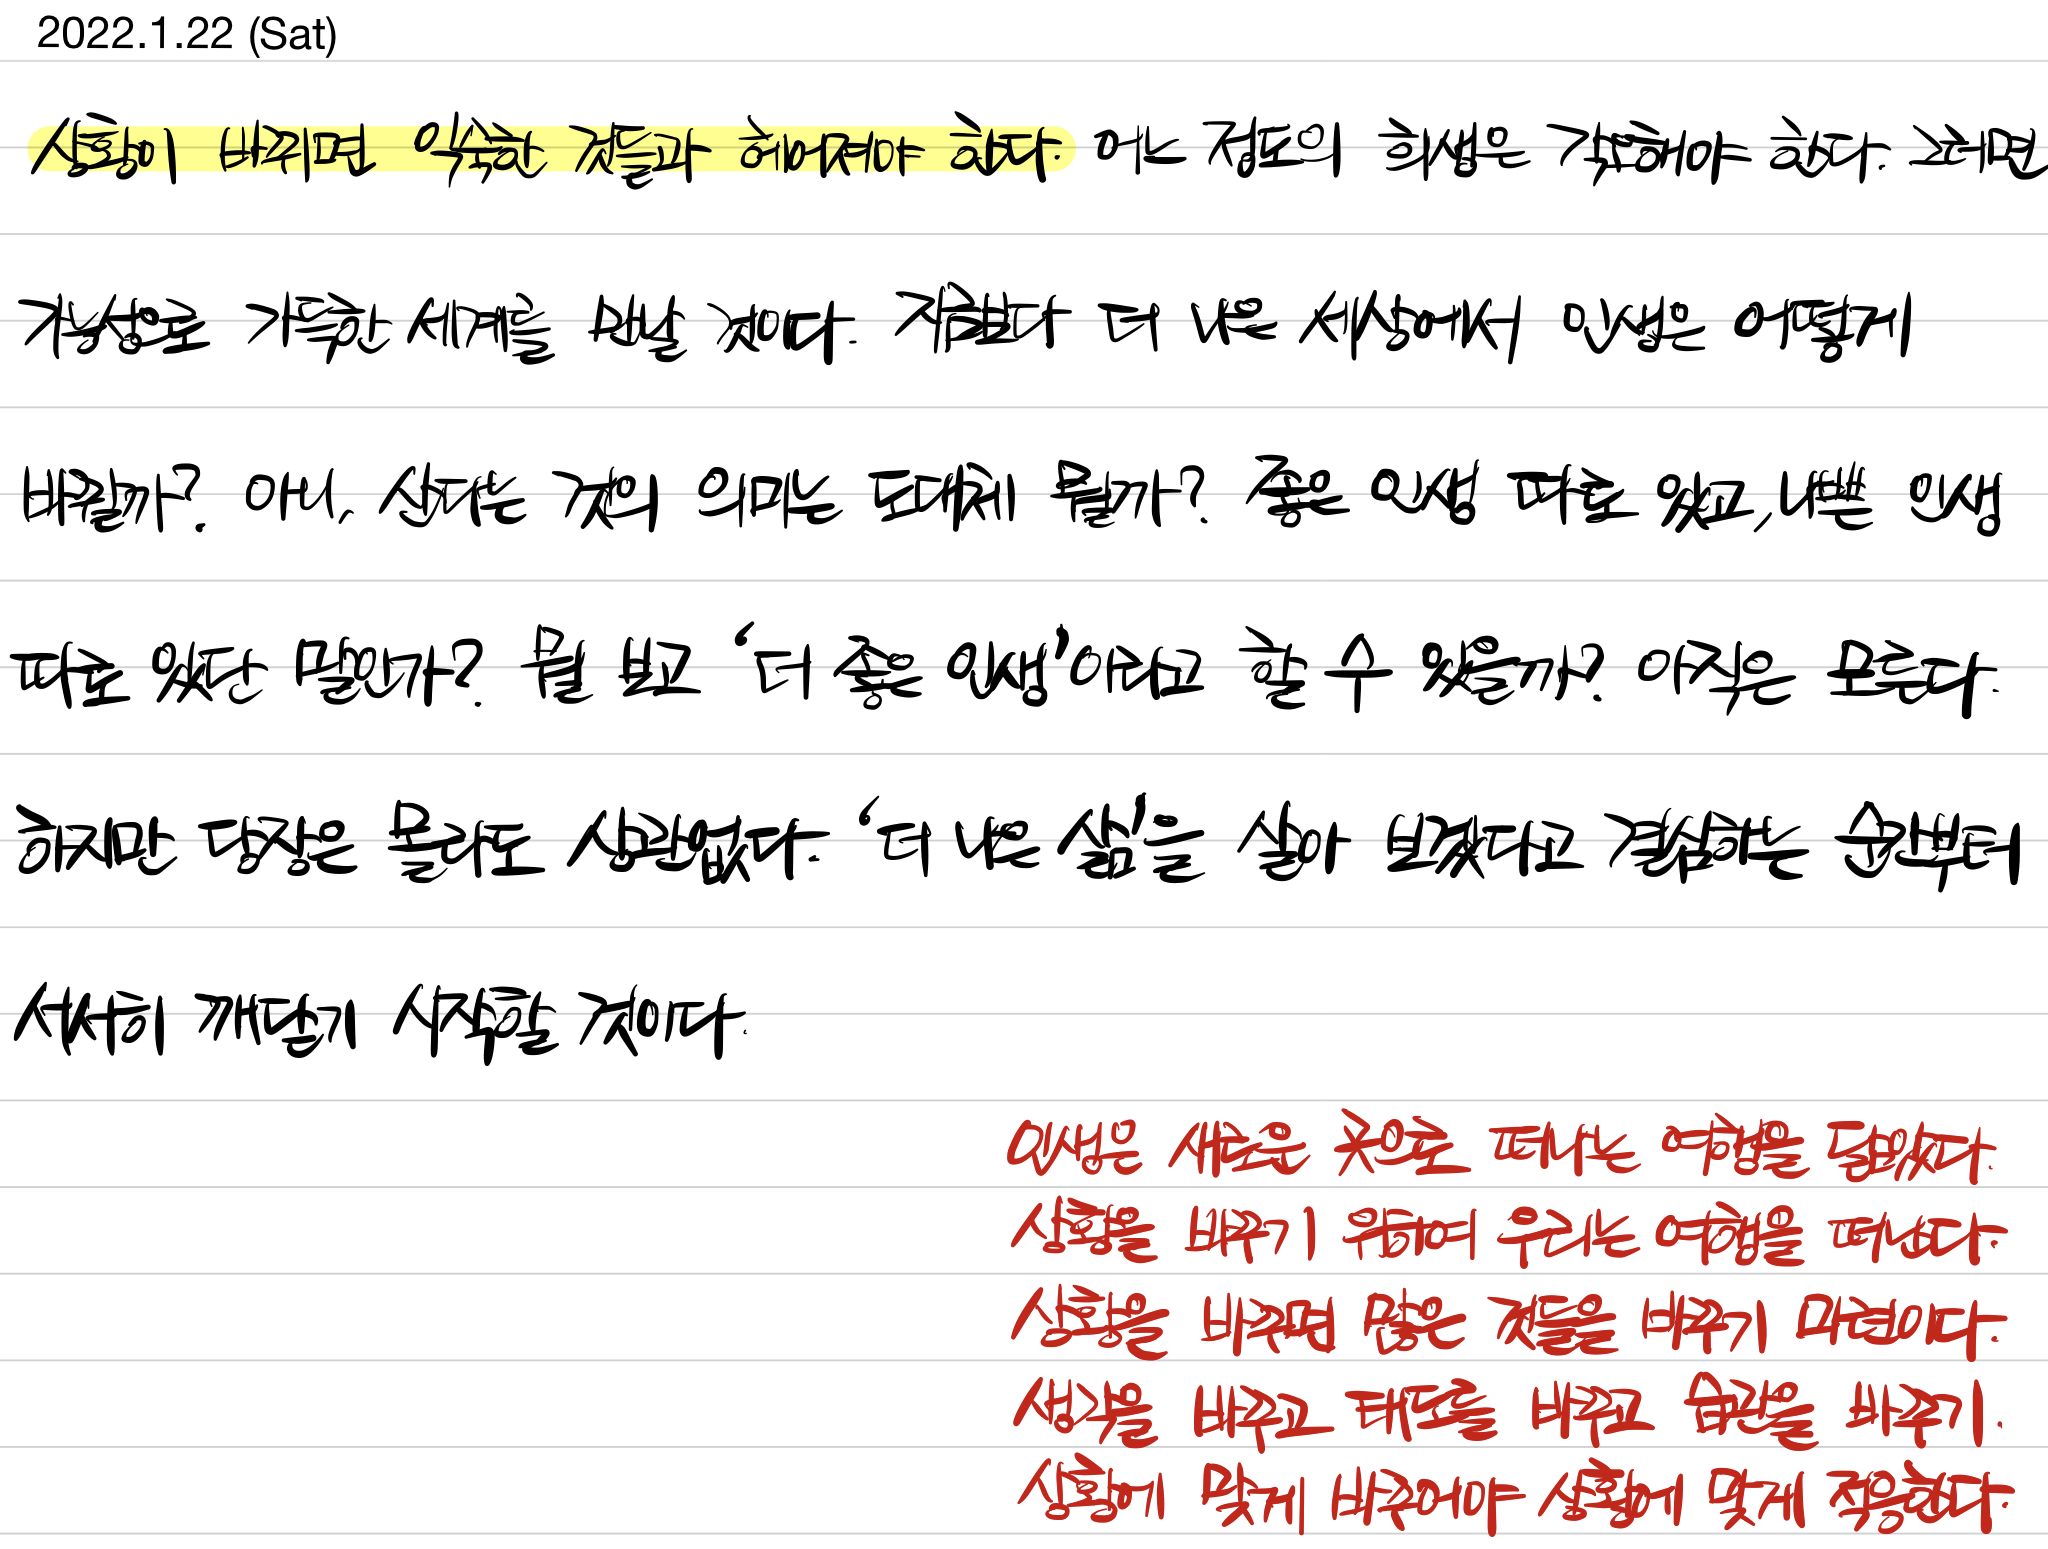 2022.1.22 (Sat)
상황이 바뀌면 익숙한 것들과 헤어져야 한다. 어느 정도의 희생은 각오해야 한다. 그러면
가능성으로 가득한 세계를 만날 것이다. 지금보다 더 나은 세상에서 인생은 어떻게
바뀔까? 아니, 산다는 것의 의미는 도대체 뭘까? 좋은 인생 따로 있고, 나쁜 인생
따로 있단 말인가? 뭘 보고 '더 좋은 인생'이라고 할 수 있을까? 아직은 모른다.
하지만 당장은 몰라도 상관없다. '더 나은 삶'을 살아 보겠다고 결심하는 순간부터
서서히 깨닫기 시작할 것이다.
인생은 새로운 곳으로 떠나는 여행을 닮았다.
상황을 바꾸기 위하여 우리는 여행을 떠난다.
상황을 바꾸면 많은 것들을 바꾸기 마련이다.
생각을 바꾸고 태도를 바꾸고 습관을 바꾸기.
상황에 맞게 바꾸어야 상황에 맞게 적응한다.